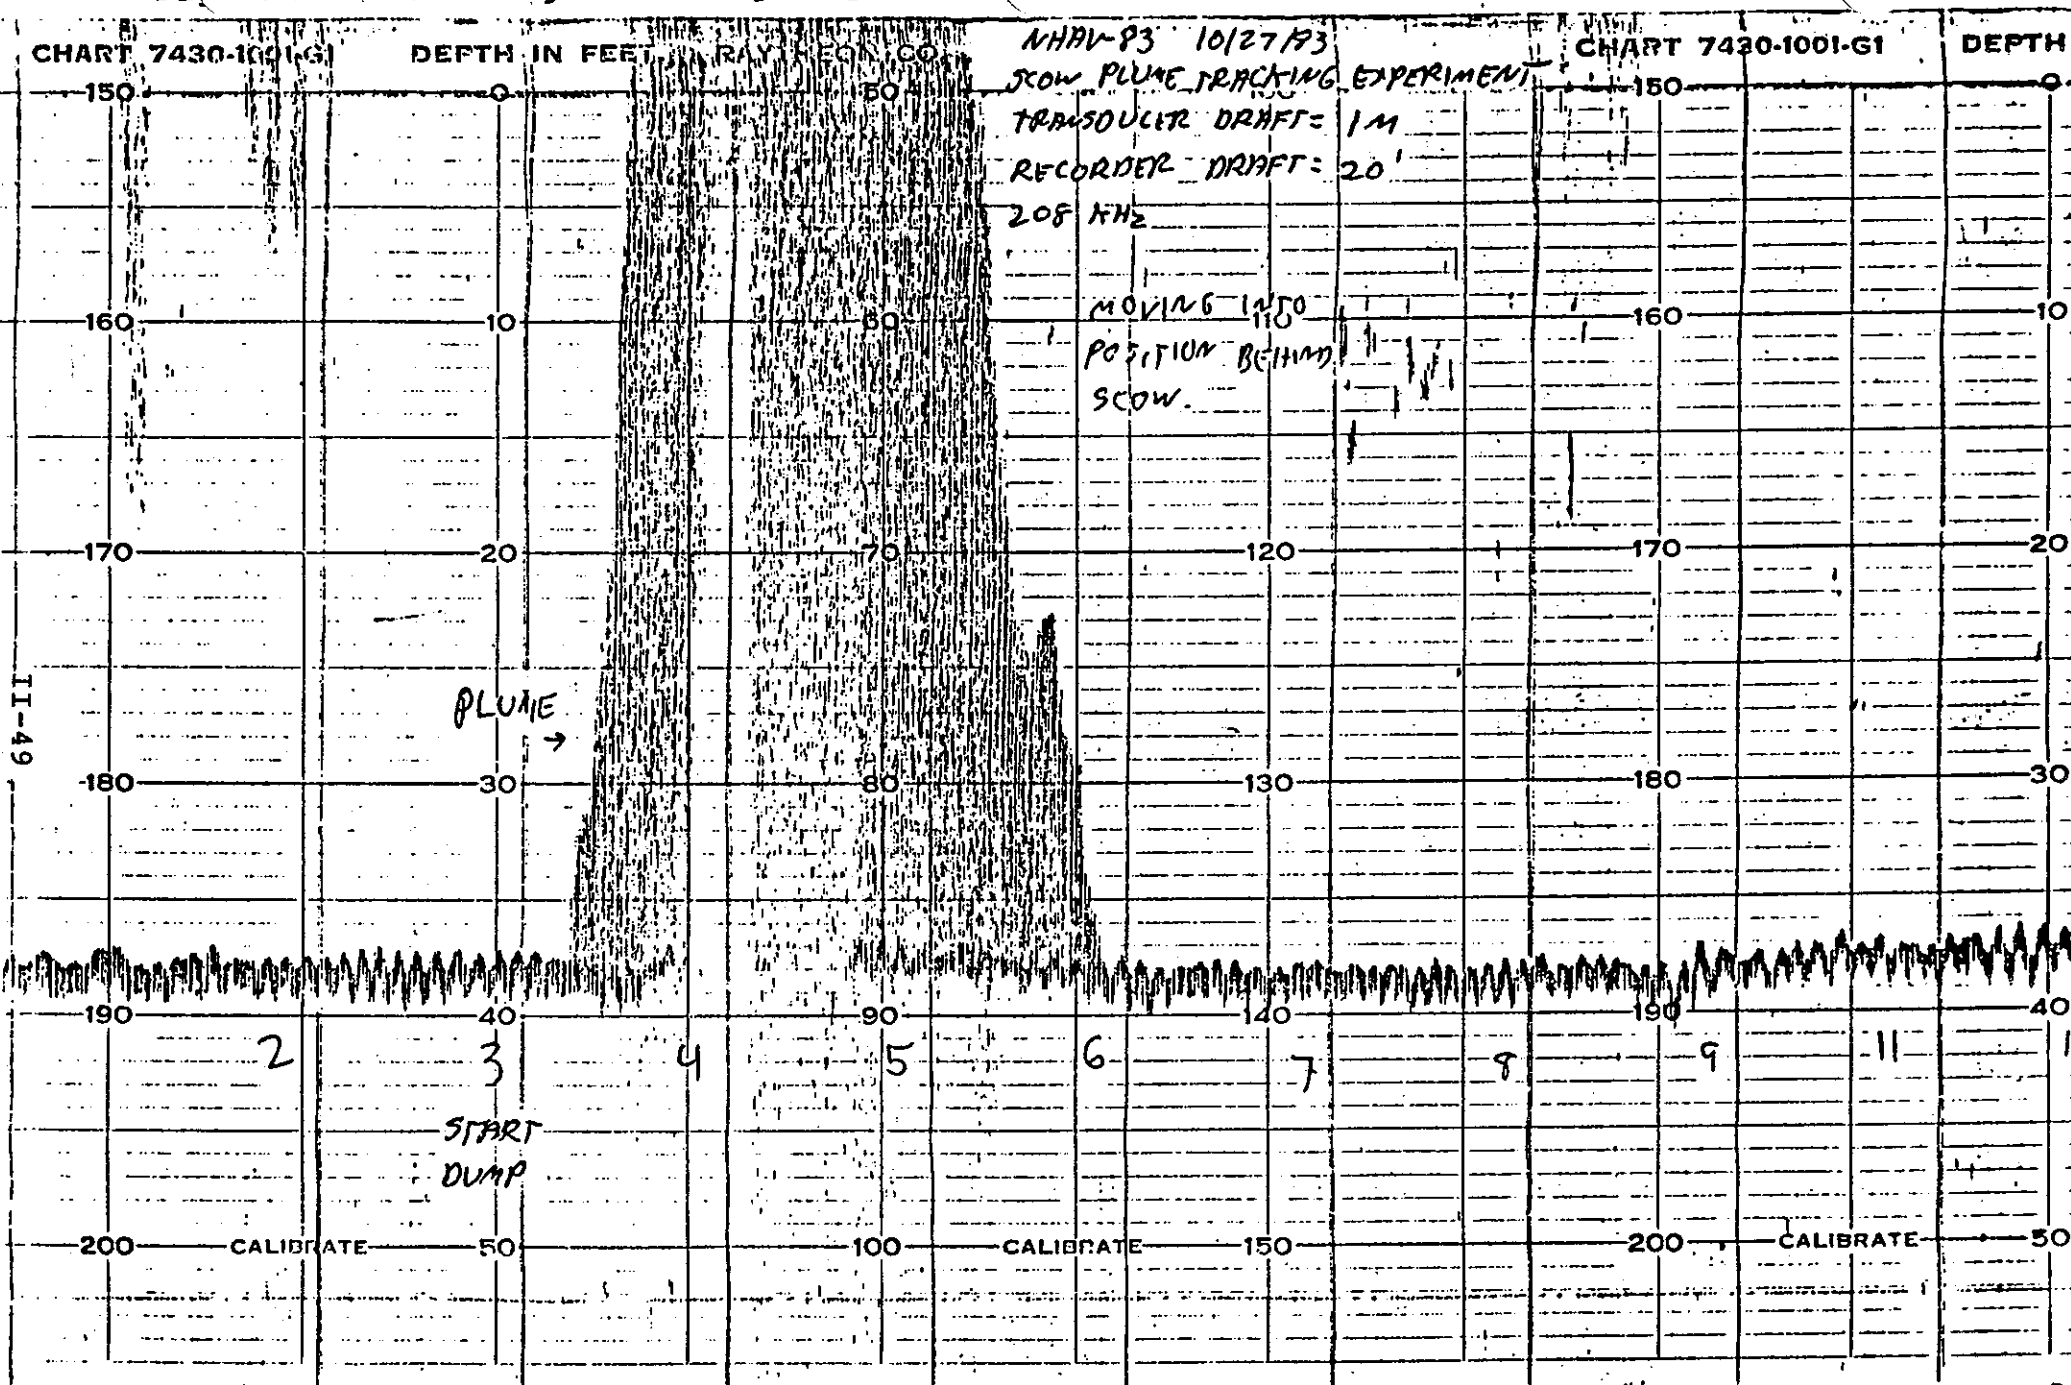 CHART 7430-1001-G1 DEPTH IN FEET RAYTHEON CO. CHART 7430-1001-G1 DEPTH
NHAV-83 10/27/93
SCOW PLUME TRACKING EXPERIMENT
TRANSDUCER DRAFT = 1M
RECORDER DRAFT = 20'
208 KHz
150 0 50 150 0
MOVING INTO
POSITION BEHIND
SCOW.
160 10 60 110 160 10
170 20 70 120 170 20
PLUME
→
II-49
180 30 80 130 180 30
190 40 90 140 190 40
2 3 4 5 6 7 8 9 11
START
DUMP
200 CALIBRATE 50 100 CALIBRATE 150 200 CALIBRATE 50